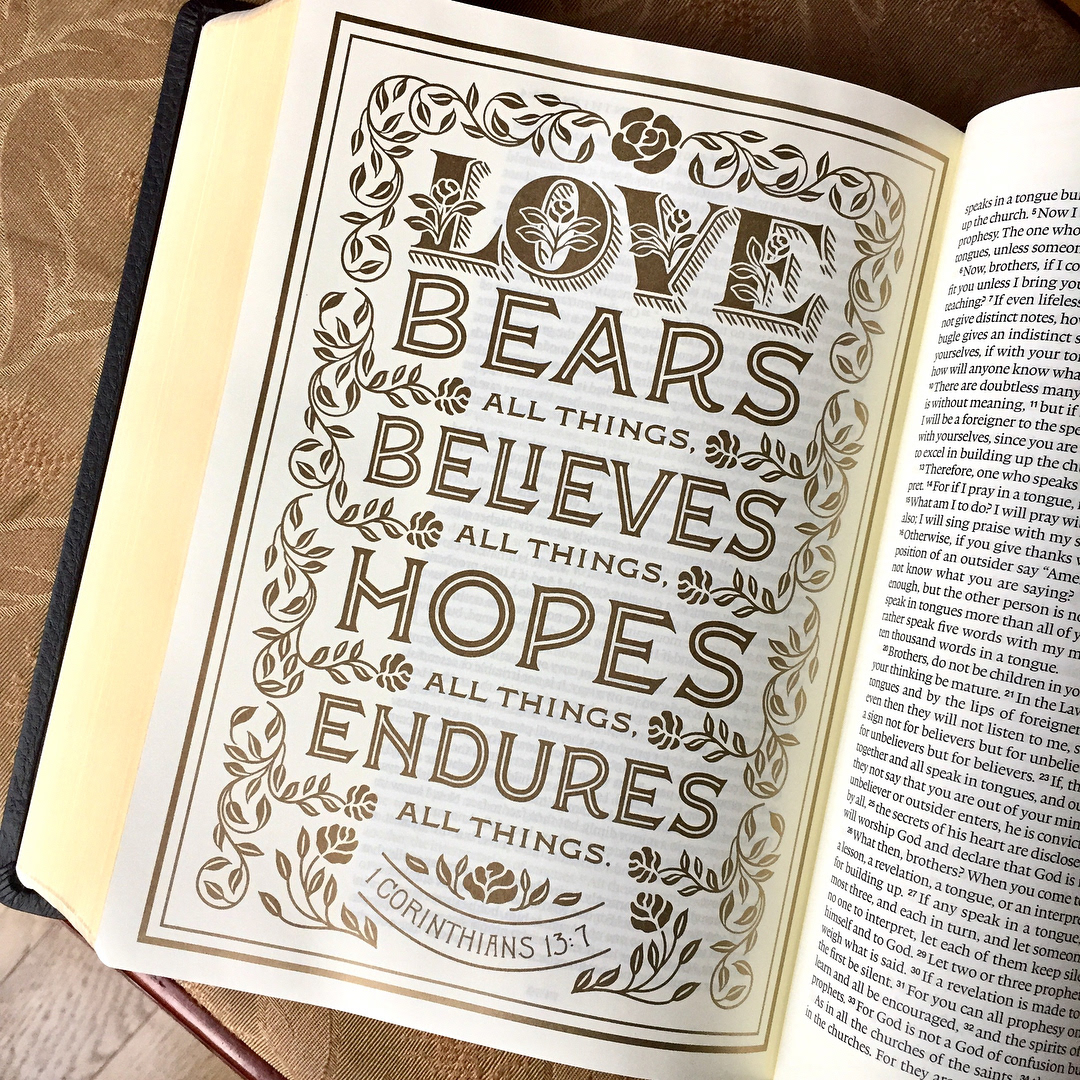 LOVE
BEARS
ALL THINGS,
BELIEVES
ALL THINGS,
HOPES
ALL THINGS,
ENDURES
ALL THINGS.
1 CORINTHIANS 13:7
speaks in a tongue
up the church. 5 Now I
prophesy. The one who
tongues, unless
6 Now, brothers, if I
fit you unless I bring
teaching? 7 If even
not give distinct notes,
bugle gives an indistinct
yourselves, if with your
how will anyone know
10 There are doubtless many
is without meaning, 11 but if
I will be a foreigner to the
with yourselves, since you are
to excel in building up the
13 Therefore, one who speaks
pret. 14 For if I pray in a tongue,
15 What am I to do? I will pray
also; I will sing praise with my
16 Otherwise, if you give thanks
position of an outsider say
not know what you are saying?
enough, but the other person is
speak in tongues more than all of
rather speak five words with my
ten thousand words in a tongue.
20 Brothers, do not be children in
your thinking be mature. 21 In the
tongues and by the lips of
even then they will not listen to me,
a sign not for believers but for
for unbelievers but for believers. 23 If,
together and all speak in tongues, and
they not say that you are out of your
unbeliever or outsider enters, he is
by all, 25 the secrets of his heart are
will worship God and declare that God is
26 What then, brothers? When you come
a lesson, a revelation, a tongue, or an
for building up. 27 If any speak in a
most three, and each in turn, and let
no one to interpret, let each of them keep
himself and to God. 29 Let two or three
weigh what is said. 30 If a revelation is made
the first be silent. 31 For you can all prophesy
learn and all be encouraged, 32 and the spirits
prophets. 33 For God is not a God of confusion
As in all the churches of the saints,
in the churches. For they